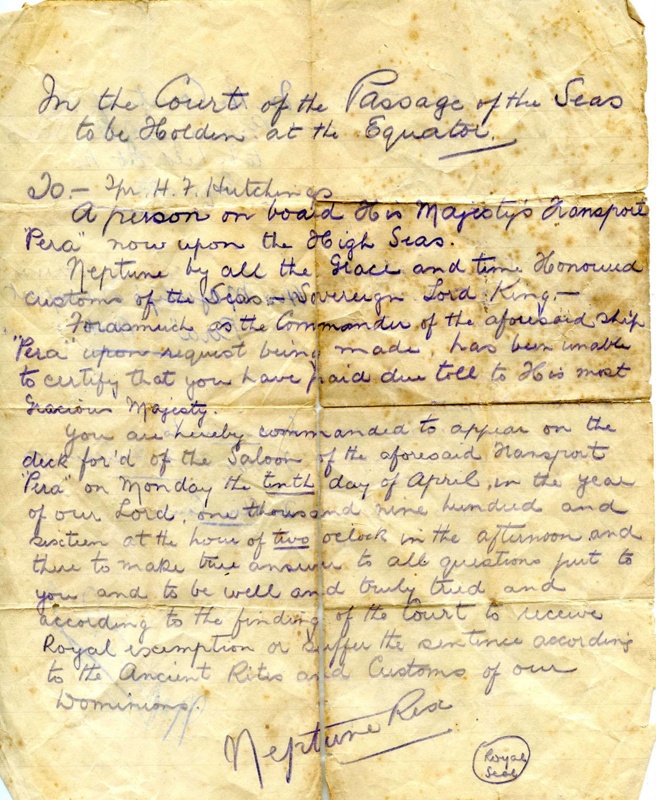 In the Court of the Passage of the Seas
to be Holden at the Equator.
To:- Tpr. H. F. Hutchings
A person on board His Majesty's Transport
"Pera" now upon the High Seas.
Neptune by all the Grace and time Honoured
customs of the Seas - Sovereign Lord King,-
Forasmuch as the Commander of the aforesaid ship
"Pera" upon request being made, has been unable
to certify that you have paid due toll to His most
Gracious Majesty.
You are hereby commanded to appear on the
deck for'd of the Saloon of the aforesaid Transport
"Pera" on Monday the tenth day of April, in the year
of our Lord, one thousand nine hundred and
sixteen at the hour of two oclock in the afternoon and
there to make true answer to all questions put to
you and to be well and truly tried and
according to the finding of the Court to receive
Royal exemption or suffer the sentence according
to the Ancient Rites and Customs of our
Dominions.
Neptune Rex
Royal
Seal